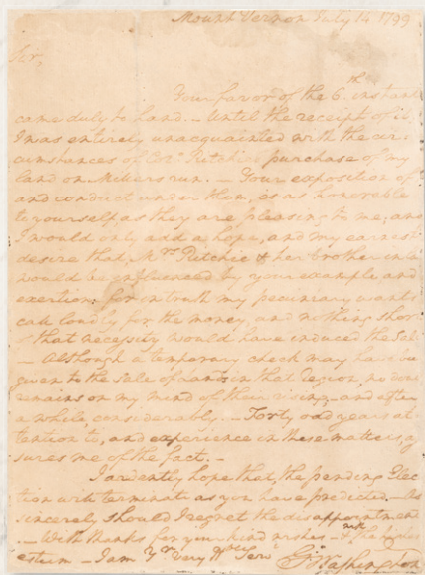 Mount Vernon July 14 1799
Sir,
Your favor of the 6th instant
came duly to hand. – Until the receipt of it
I was entirely unacquainted with the cir-
cumstances of Colo. Ritchies purchase of my
land on Millers run. – Your exposition of
and conduct under them, is as honorable
to yourself as they are pleasing to me; and
I would only add a hope, and my earnest
desire that, Mrs. Ritchie & her brother in law
would be influenced by your example and
exertion; for in truth my pecuniary wants
call loudly for the money, and nothing shor-
t that necessity would have induced the Sale
– Although a temporary check may have be
given to the Sale of lands in that region, no dou
remains on my mind of their rising, and after
a while considerably. – Forty odd years at-
tention to, and experience in these matters, as
sures me of the fact. –
I ardently hope that, the pending Elec
tion will terminate as you have predicted. – As
sincerely should I regret the disappointment
. – With thanks for your kind wishes – & the
esteem – I am Yr Very Hble Servt
Go: Washington